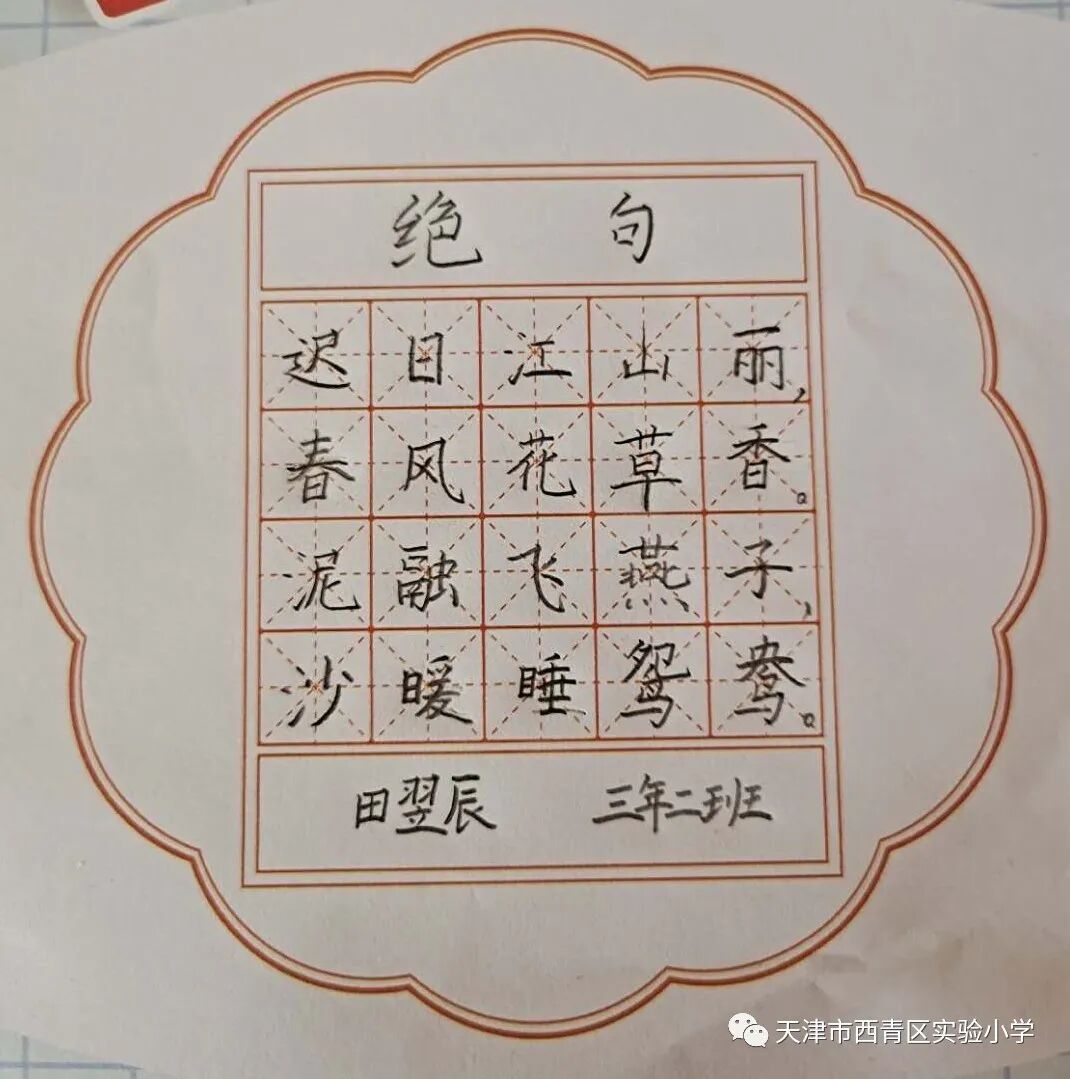 绝 句
迟日江山丽,
春风花草香。
泥融飞燕子,
沙暖睡鸳鸯。
田翌辰 三年二班
天津市西青区实验小学